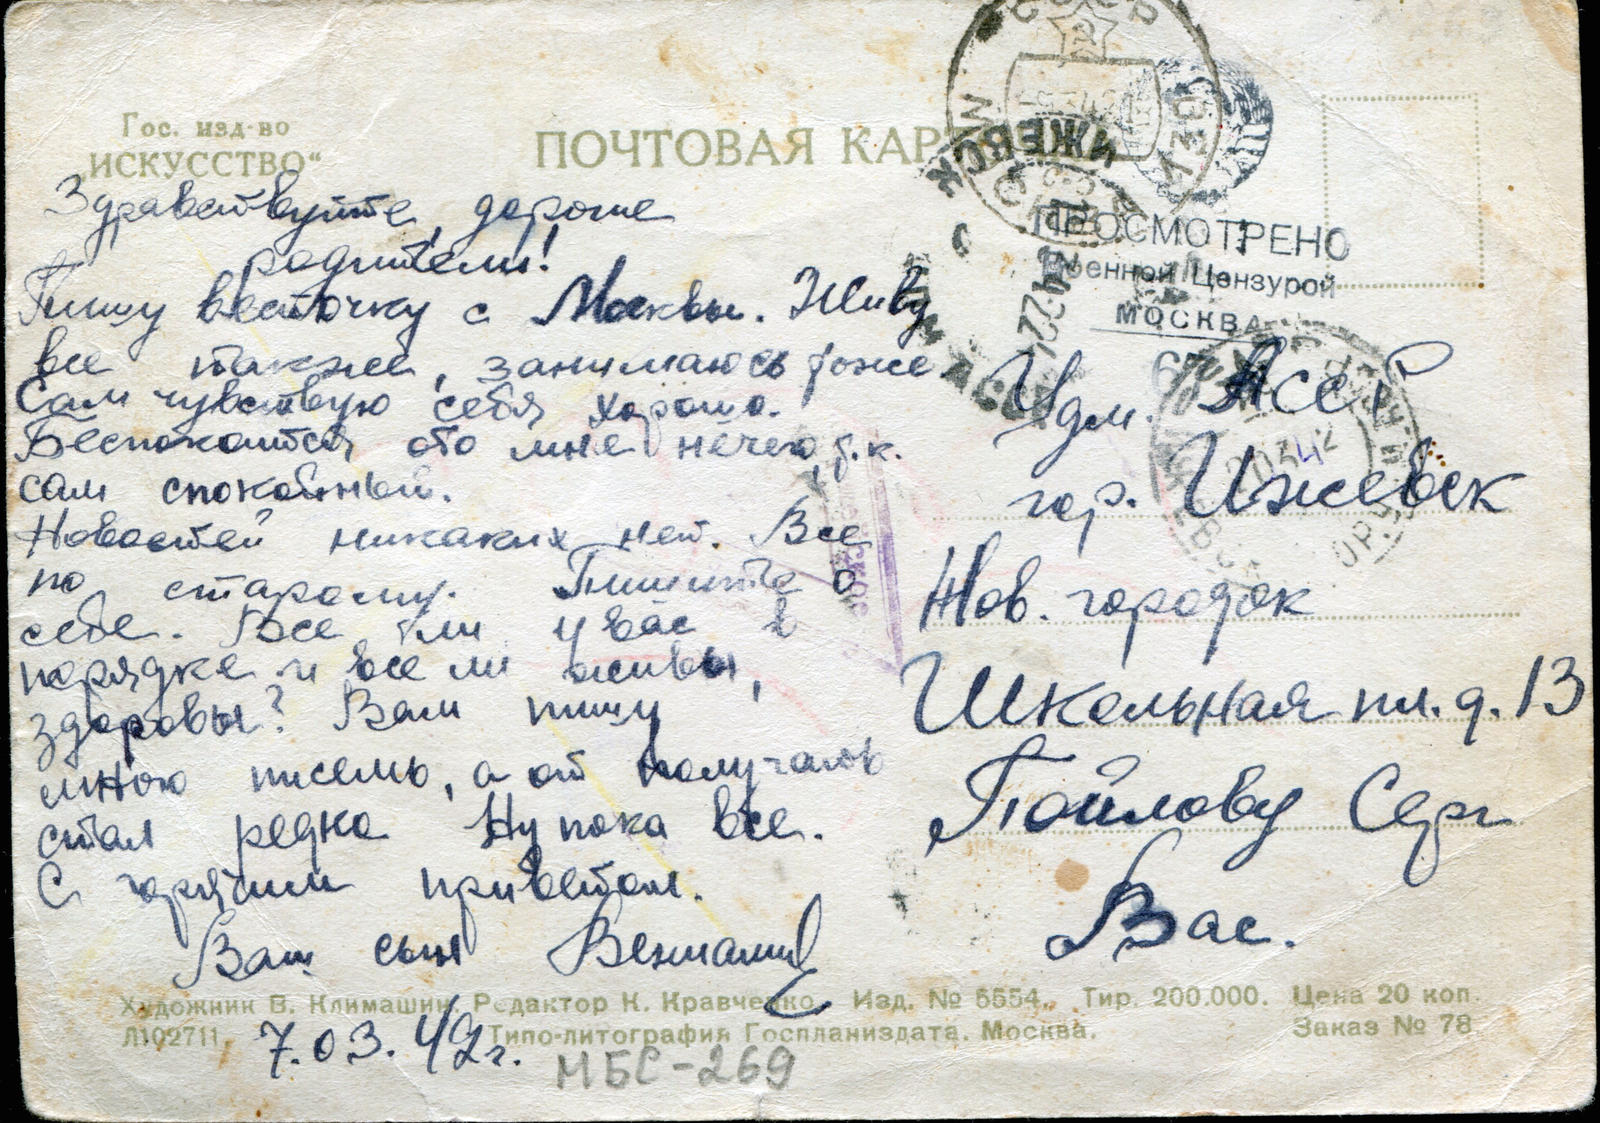 Гос. изд-во
„ИСКУССТВО“
ПОЧТОВАЯ
Здравствуйте, дорогие
родители!
Пишу весточку с Москвы. Живу
все также, занимаюсь тоже
Сам чувствую себя хорошо.
Беспокоится обо мне нечего, т.к.
сам спокойный.
Новостей никаких нет. Все
по старому. Пишите о
себе. Все ли у вас в
порядке и все ли живы,
здоровы? Вам пишу
много писем, а от получать
стал редко Ну пока все.
С горячим приветом.
Ваш сын Вениамин
7.03.42г.
СССР
ИЖЕВСК
ПРОСМОТРЕНО
Военной Цензурой
МОСКВА
67
Удм. АССР
гор. Ижевск
Нов. городок
Школьная пл. д. 13
Пойлову Серг
Вас.
Художник В. Климашин. Редактор К. Кравченко. Изд. № 5554. Тир. 200.000. Цена 20 коп.
Л102711. Типо-литография Госпланиздата. Москва. Заказ № 78
МБС-269